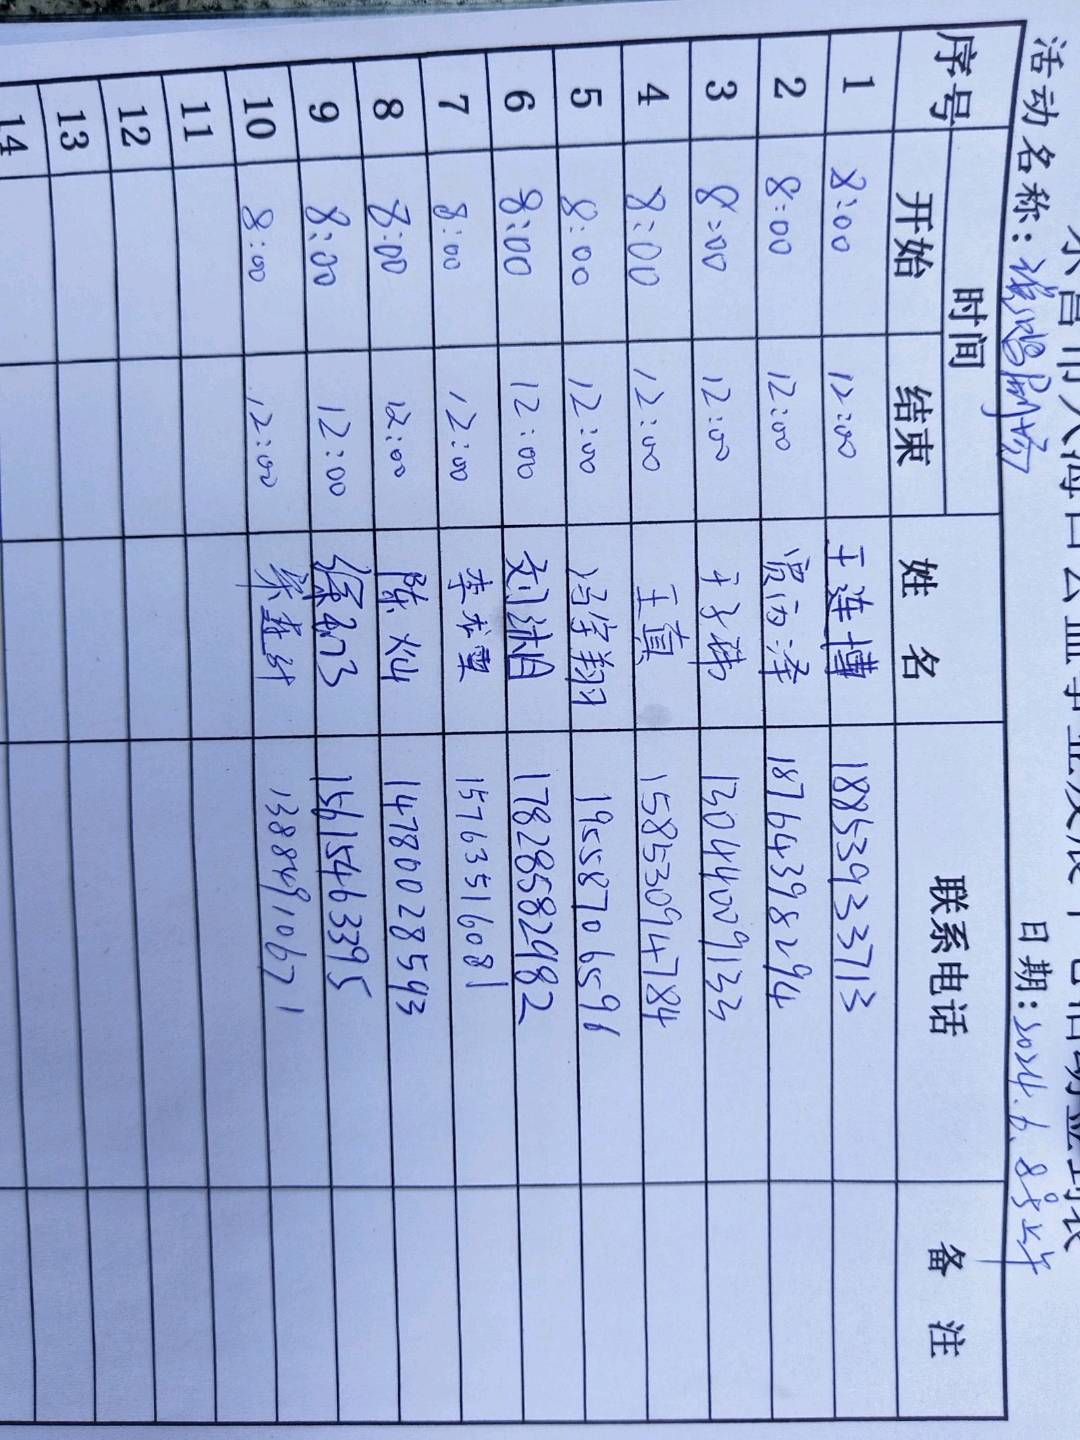 东营市大海口公益事业发展中心活动签到表
活动名称： 日期：2024.6.8号上午
序号 时间 姓名 联系电话 备注
开始 结束
1 8:00 12:00 王连博 18853933713
2 8:00 12:00 贾雨泽 18764398294
3 8:00 12:00 13044009133
4 8:00 12:00 王真 15853094784
5 8:00 12:00 冯学翔 19558706596
6 8:00 12:00 17828582982
7 8:00 12:00 15763516081
8 8:00 12:00 陈灿 14780028593
9 8:00 12:00 15615463395
10 8:00 12:00 13884910671
11
12
13
14